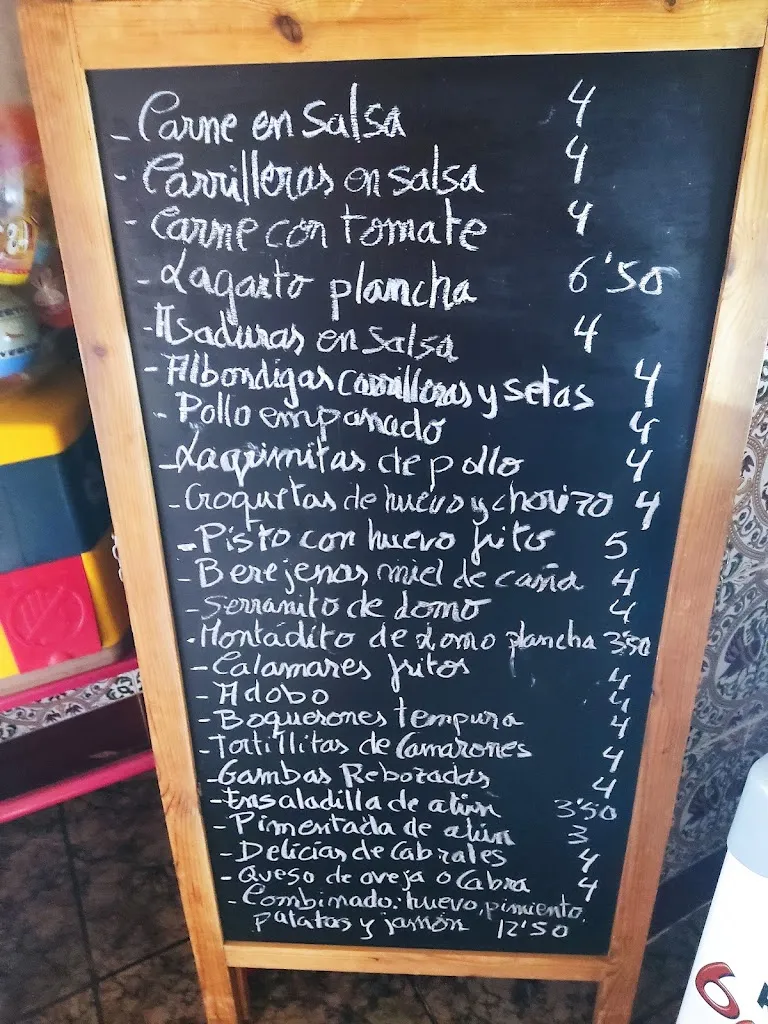 - Carne en Salsa 4
- Carrilleras en salsa 4
- Carne con tomate 4
- Lagarto plancha 6'50
- Asaduras en salsa 4
- Albondigas carrilleras y setas 4
- Pollo empanado 4
- Lagrimitas de pollo 4
- Croquetas de huevo y chorizo 4
- Pisto con huevo frito 5
- Berejenas miel de caña 4
- Serranito de Lomo 4
- Montadito de Lomo plancha 3'50
- Calamares fritos 4
- Adobo 4
- Boquerones tempura 4
- Tortillitas de Camarones 4
- Gambas Rebozadas 4
- Ensaladilla de atún 3'50
- Pimentada de atún 3
- Delicias de Cabrales 4
- Queso de oveja o Cabra 4
- Combinado: huevo, pimiento,
patatas y jamón 12'50